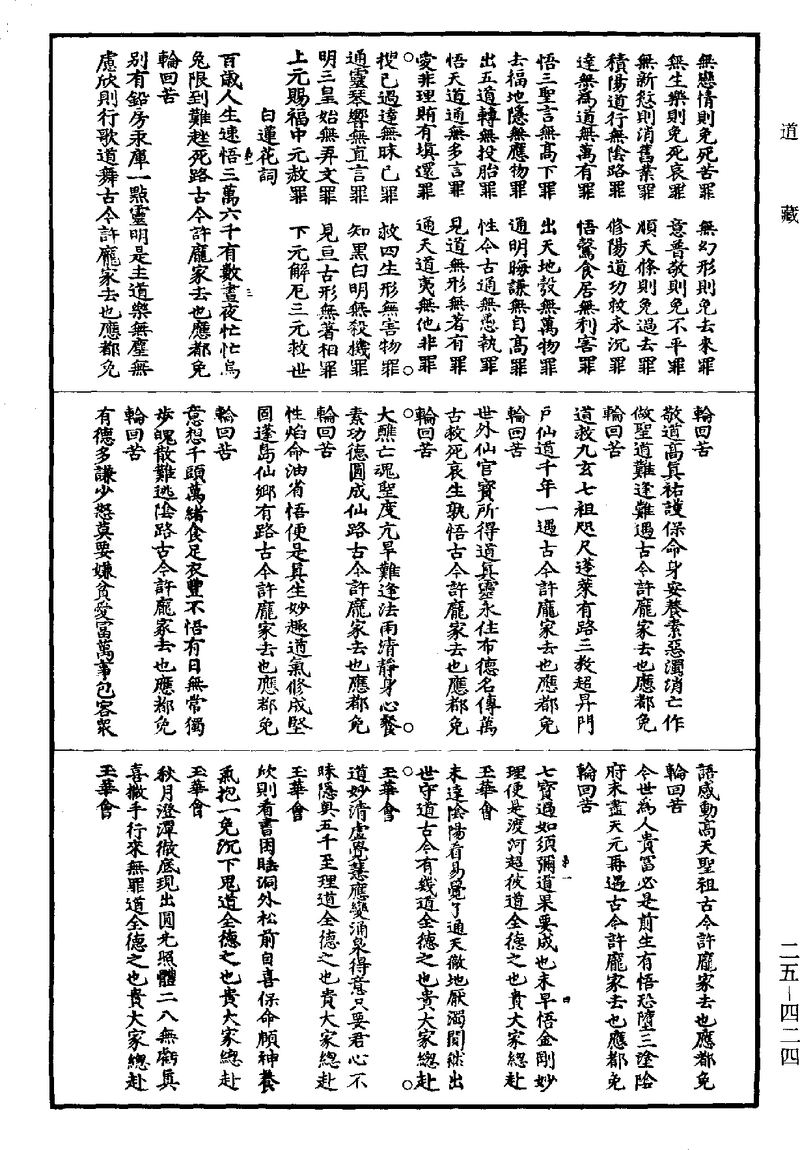 道藏
二五—四二四
無戀情則免死苦罪　無幻形則免去來罪
無生樂則免死哀罪　意普敬則免不平罪
無新愆則消舊業罪　順天條則免過去罪
積陽道行無陰路罪　修陽道功救永沉罪
達無為道無萬有罪　悟鶩食居無利害罪
悟三聖言無高下罪　出天地殼無萬物罪
去福地隱無應物罪　通明晦謙無自高罪
出五道轉無投胎罪　性今古通無愚執罪
悟天道通無多言罪　見道無形無著有罪
愛非理賄有填還罪　通天道夷無他非罪
搜己過達無昧己罪　救四生形無害物罪
通靈琴響無直言罪　知黑白明無殺機罪
明三皇始無弄文罪　見亘古形無著相罪
上元賜福中元赦罪　下元解厄三元救世
白蓮花詞
百歲人生速悟三萬六千有數晝夜忙忙烏
兔限到難趓死路古今許龐家去也應都免
輪回苦
別有鉛房汞庫一點靈明是主道樂無塵無
慮欣則行歌道舞古今許龐家去也應都免
輪回苦
敬道高真祐護保命身安養素惡濁消亡作
做聖道難逢難遇古今許龐家去也應都免
輪回苦
道救九玄七祖咫尺蓬萊有路三教超昇門
戶仙道千年一遇古今許龐家去也應都免
輪回苦
世外仙官寶所得道真靈永住布德名傳萬
古救死哀生孰悟古今許龐家去也應都免
輪回苦
大醮亡魂聖度亢旱難逢法雨清靜身心養
素功德圓成仙路古今許龐家去也應都免
輪回苦
性焰命油省悟便是真生妙趣道氣修成堅
固蓬島仙鄉有路古今許龐家去也應都免
輪回苦
意想千頭萬緒食足衣豐不悟有日無常獨
步魄散難逃陰路古今許龐家去也應都免
輪回苦
有德多謙少怒莫要嫌貧愛富萬事包容眾
語感動高天聖祖古今許龐家去也應都免
輪回苦
今世為人貴富必是前生有悟恐墮三塗陰
府未盡天元再遇古今許龐家去也應都免
輪回苦
七寶過如須彌道果要成也未早悟金剛妙
理便是渡河超彼道全德之也貴大家總赴
玉華會
未達陰陽看易覺了通天徹地厭濁閻紲出
世守道古今有幾道全德之也貴大家總赴
玉華會
道妙清虛覺慧應變涌泉得意只要君心不
昧隱奧五千至理道全德之也貴大家總赴
玉華會
欣則看書困睡洞外松前自喜保命頤神養
氣抱一免沉下鬼道全德之也貴大家總赴
玉華會
秋月澄潭徹底現出圓光照體二八無虧真
喜撇手行來無罪道全德之也貴大家總赴
玉華會